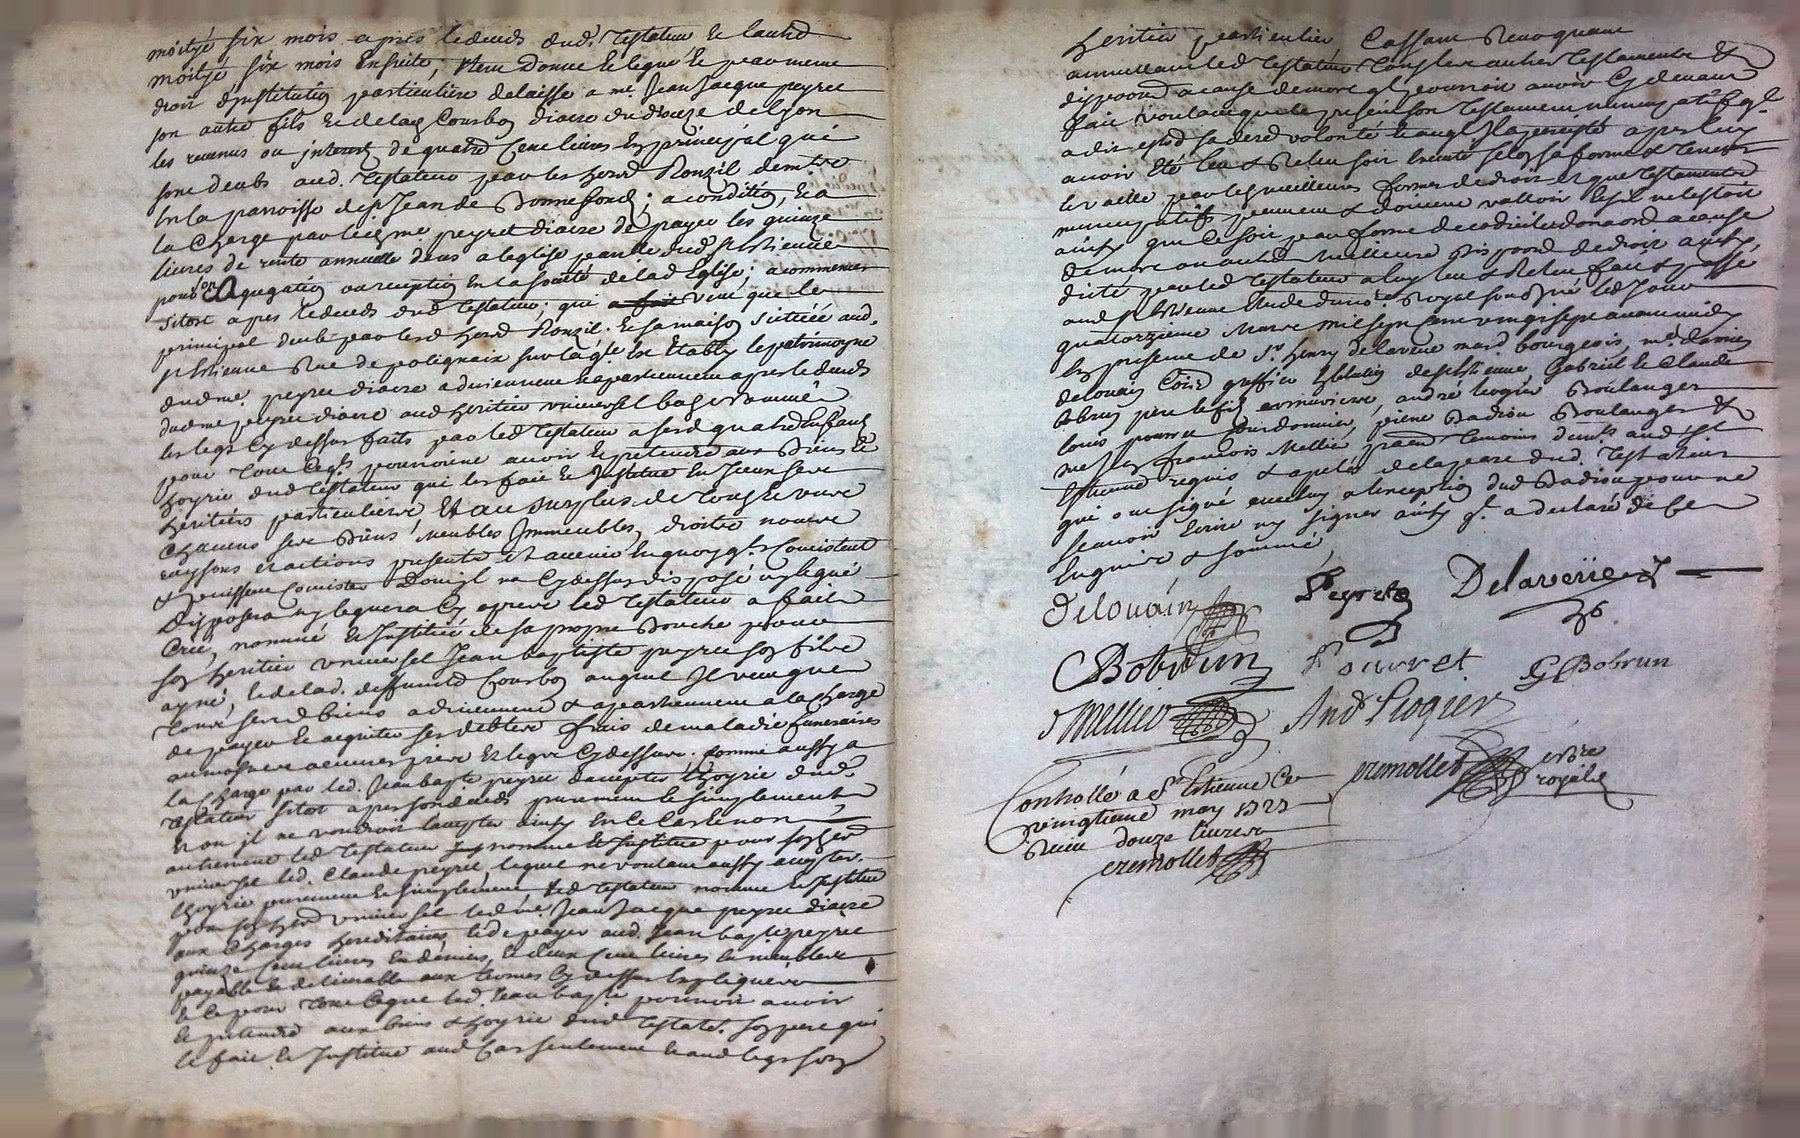 moitjé six mois apres le deceds dud. testateur et lautre
moitjé six mois ensuite; Item donne et legue et par meme
droit d'institution particuliere delaisse a me. Jean Jacque peyret
son autre fils et de lad. Courbon diacre du dioceze de Lyon
les revenus ou interest de quatre cent livres en principal qui
sont deubs aud. testateur par les herd. Ronzil demt.
en la parroisse de st Jean de Bonnefond; a condition, et a
la charge par led. me peyret diacre de payer les quinze
livres de rente annuelle deus a leglise par dud. st Estienne
pour son agregation ou reception en la societé de lad Eglise; a commencer
sitost apres le deceds dud testateur; qui veut que le
principal deub par lesd herd Ronzil. et sa maison scituée aud.
st Estienne rue de polignais sur laql. est etably le patrimoyne
dud me. peyret diacre adviennent et apartiennent apres le deceds
dud me peyret diacre aud heritier universel bas nommé
les legs cy dessus faits par led testateur a sesd quatre enfants
pour tout ce qls pourroient avoir et pretendre aux biens et
hoyrie dud testateur qui les fait et Institue en yceux ses
heritiers particuliers Et au surplus de tous et uns
chacuns ses biens meubles Immeubles, droits noms
raysons et actions presents et avenir en quoy qls consistent
et puissent consister dont jl na cy dessus disposé ny legué
disposera ny leguera cy apres led testateur a fait
créé, nommé et Institué de sa propre bouche pour
son heritier universel Jean baptiste peyret son fils
ayné, et de lad. deffuncte Courbon auquel Jl veut que
tous sesd biens adviennent & apartiennent a la charge
de payer et acquiter ses debtes frais de maladie funeraires
aumosnes œuvres pies et legs cy dessus. Comme aussy a
la charge par led. Jean bapte peyret daccepter lhoyrie dud.
testateur sitot apres son deceds purement et simplement,
et ou jl ne voudroit laccepter ainsy en ce cas et non
autrement led testateur nomme et Institue pour son herd
universel led. Claude peyret, lequel ne voulant aussy accepter
lhoyrie purement et simplement led testateur nomme et Institue
pour son herd universel led me. Jean Jacque peyret diacre
aux charges hereditaires, et de payer aud. Jean bapte peyret
quinze cent livres en deniers, et deux cent livres en meubles
payable et delivrable aux termes cy dessus expliqués
et ce pour tout ce que led. Jean bapte. pourroit avoir
et pretendre aux biens & hoyrie dud testatr. son pere qui
le fait et Institue aud cas seulement et aud legs son
heritier particulier Cassant revoquant
annullant led testateur tous les autres testaments &
disposons a cause de mort ql pourroit avoir cy devant
fait voulant que le present son testament nuncupatif ql
a dit estre sa dere volonté et auql Il a persisté apres luy
avoir été leu & releu soit executé selon sa forme & teneur
et vaille par les meilleures formes de droit et que testaments
nuncupatifs peuvent & doivent valloir et sil ne lestoit
ainsy que ce soit par forme de codicile donaon a cause
de mort ou autre meilleure dispoon de droit ainsy
dicté par led testateur a luy leu & releu fait & passé
aud st Estienne Etude du nore royal soussigné led jour
quatorzieme Mars mil sept cent vingt sept avant midy
en presence de sr. henry delaverie mard. bourgeois, me. damien
delouain Coms greffier de st Estienne, Gabriel et Claude
Bobrun pere et fils armuriers, andré Liogier Boulanger
louis pourret Cordonnier, pierre Badiou Boulanger &
me Jean francois Mellier praen temoins demts aud st
Estienne requis & apelés de la part dud. testateur
qui ont signé avec luy a lexception dud Badiou pour ne
scavoir ecrire ny signer ainsy ql. a declaré de ce
enquis & sommé,
Delouain Peyret Delaverie
C Bobrun Pourret G Bobrun
Mellier And Liogier
Cremollet nore
royal
Controllé a St Estienne le
vingtieme may 1727
Receu douze livres
Cremollet